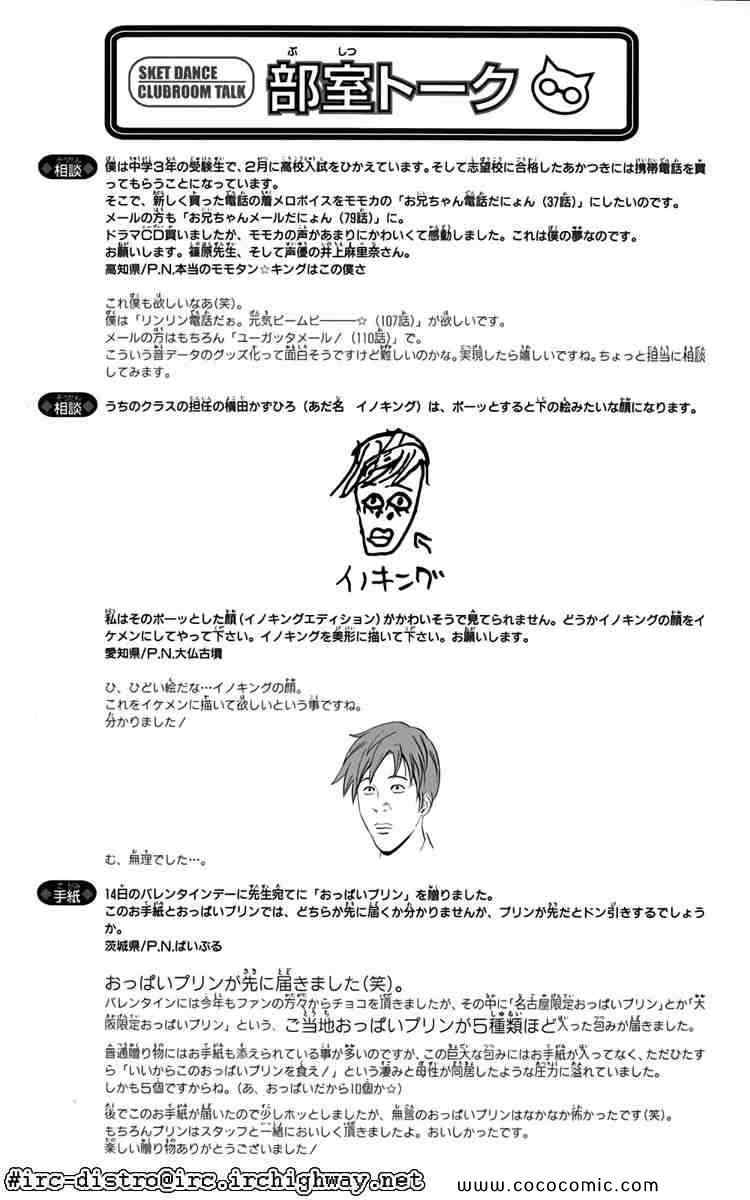 SKET DANCE
CLUBROOM TALK
部室トーク
相談
僕は中学3年の受験生で、2月に高校入試をひかえています。そして志望校に合格したあかつきには携帯電話を買
ってもらうことになっています。
そこで、新しく買った電話の着メロボイスをモモカの「お兄ちゃん電話だにょん（37話）」にしたいのです。
メールの方も「お兄ちゃんメールだにょん（79話）」に。
ドラマCD買いましたが、モモカの声があまりにかわいくて感動しました。これは僕の夢なのです。
お願いします。篠原先生、そして声優の井上麻里奈さん。
高知県/P.N.本当のモモタン☆キングはこの僕さ
これ僕も欲しいなあ（笑）。
僕は「リンリン電話だぉ。元気ビームビ―――☆（107話）」が欲しいです。
メールの方はもちろん「ユーガッタメール！（110話）」で。
こういう音データのグッズ化って面白そうですけど難しいのかな。実現したら嬉しいですね。ちょっと担当に相談
してみます。
相談
うちのクラスの担任の横田かずひろ（あだ名　イノキング）は、ボーッとすると下の絵みたいな顔になります。
イノキング
私はそのボーッとした顔（イノキングエディション）がかわいそうで見てられません。どうかイノキングの顔をイ
ケメンにしてやって下さい。イノキングを美形に描いて下さい。お願いします。
愛知県/P.N.大仏古墳
ひ、ひどい絵だな…イノキングの顔。
これをイケメンに描いて欲しいという事ですね。
分かりました！
む、無理でした…。
手紙
14日のバレンタインデーに先生宛てに「おっぱいプリン」を贈りました。
このお手紙とおっぱいプリンでは、どちらが先に届くか分かりませんが、プリンが先だとドン引きするでしょう
か。
茨城県/P.N.ぱいぷる
おっぱいプリンが先に届きました（笑）。
バレンタインには今年もファンの方々からチョコを頂きましたが、その中に「名古屋限定おっぱいプリン」とか「大
阪限定おっぱいプリン」という、ご当地おっぱいプリンが5種類ほど入った包みが届きました。
普通贈り物にはお手紙も添えられている事が多いのですが、この巨大な包みにはお手紙が入ってなく、ただひたす
ら「いいからこのおっぱいプリンを食え！」という凄みと母性が同居したような圧力に溢れていました。
しかも5個ですからね。（あ、おっぱいだから10個か☆）
後でこのお手紙が届いたので少しホッとしましたが、無言のおっぱいプリンはなかなか怖かったです（笑）。
もちろんプリンはスタッフと一緒においしく頂きましたよ。おいしかったです。
楽しい贈り物ありがとうございました！
#irc-distro@irc.irchighway.net
www.cococomic.com